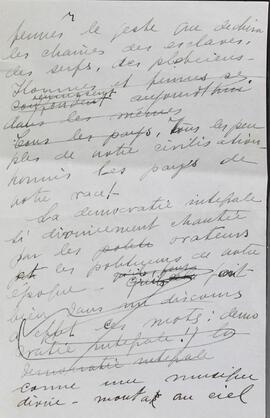 femmes le geste qui déchira
les chaînes des esclaves,
des serfs, des plébéiens.
Hommes et femmes se
confondent aujourd'hui
dans les mêmes
Tous les pays, tous les peu
ples de notre civilisation
hormis les pays de
notre race
La démocratie intégrale
si divinement chantée
par les poètes orateurs
et les politiciens de notre
époque
bien dans nos discours
ces mots: démo
cratie intégrale!) la
démocratie intégrale
comme une musique
divine - montat au ciel